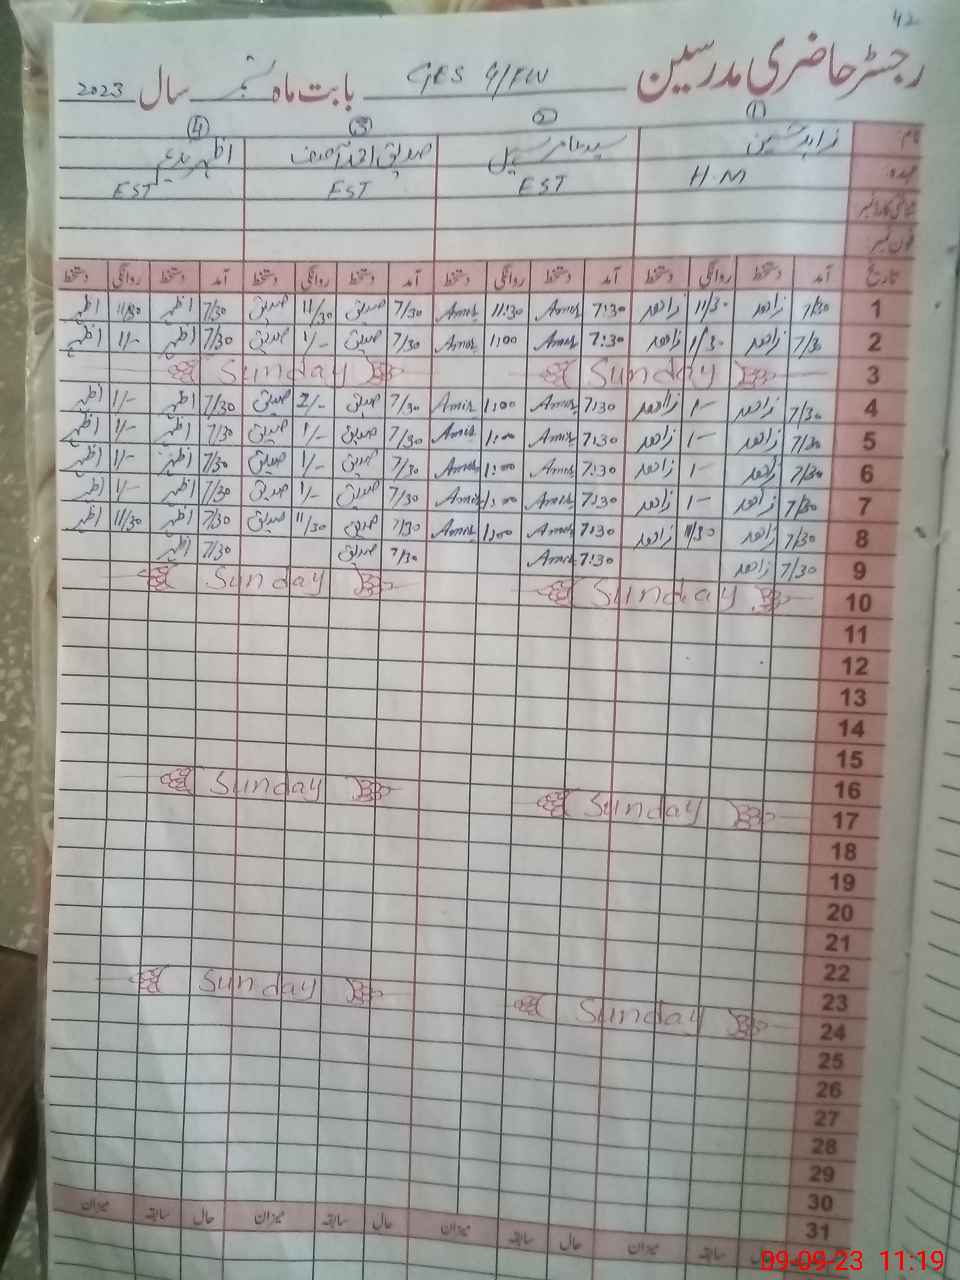 42
رجسٹر حاضری مدرسین GES 4/FW بابت ماہ ستمبر سال 2023
① ② ③ ④
نام: زاہد حسین سید عامر سہیل صدیق احمد آصف اظہر
عہدہ: H.M EST EST EST
شناختی کارڈ نمبر
فون نمبر:
تاریخ آمد دستخط روانگی دستخط آمد دستخط روانگی دستخط آمد دستخط روانگی دستخط آمد دستخط روانگی دستخط
1 7/30 زاھد 11/30 زاھد 7:30 Amir 11:30 Amir 7/30 صدیق 11/30 صدیق 7/30 اظہر 11/30 اظہر
2 7/30 زاھد 1/30 زاھد 7:30 Amir 1:00 Amir 7/30 صدیق 1/- صدیق 7/30 اظہر 1/- اظہر
3 Sunday Sunday
4 7/30 زاھد 1- زاھد 7:30 Amir 1:00 Amir 7/30 صدیق 2/- صدیق 7/30 اظہر 1/- اظہر
5 7/30 زاھد 1- زاھد 7:30 Amir 1:00 Amir 7/30 صدیق 1/- صدیق 7/30 اظہر 1/- اظہر
6 7/30 زاھد 1- زاھد 7:30 Amir 1:00 Amir 7/30 صدیق 1/- صدیق 7/30 اظہر 1/- اظہر
7 7/30 زاھد 1- زاھد 7:30 Amir 1:00 Amir 7/30 صدیق 1/- صدیق 7/30 اظہر 1/- اظہر
8 7/30 زاھد 11/30 زاھد 7:30 Amir 1:00 Amir 7/30 صدیق 11/30 صدیق 7/30 اظہر 11/30 اظہر
9 7/30 زاھد 7:30 Amir 7/30 صدیق 7/30 اظہر
10 Sunday Sunday
11
12
13
14
15
16
17 Sunday Sunday
18
19
20
21
22
23
24 Sunday Sunday
25
26
27
28
29
30
31
حال سابقہ میزان حال سابقہ میزان حال سابقہ میزان حال سابقہ میزان
09-09-23 11:19